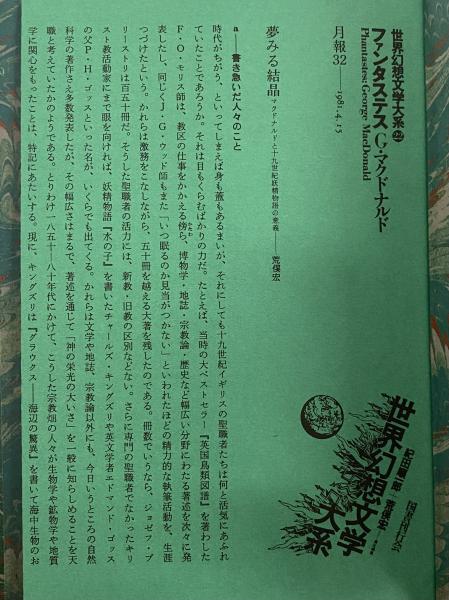 世界幻想文学大系㉒
ファンタステス G・マクドナルド
Phantastes: George MacDonald
月報32――1981.4.15
夢みる結晶 マクドナルドと十九世紀妖精物語の意義――荒俣宏
a――書き急いだ人々のこと
時代がちがう、といってしまえば身も蓋もあるまいが、それにしても十九世紀イギリスの聖職者たちは何と活気にあふれ
ていたことであろうか。それは目もくらむばかりの力だ。たとえば、当時の大ベストセラー『英国鳥類図譜』を著わした
F・O・モリス師は、教区の仕事をかかえる傍ら、博物学・地誌・宗教論・歴史など幅広い分野にわたる著述を次々に発
表したし、同じくJ・G・ウッド師もまた「いつ眠るのか見当がつかない」といわれたほどの精力的な執筆活動を、生涯
つづけたという。かれらは激務をこなしながら、五十冊を越える大著を残したのである。冊数でいうなら、ジョゼフ・プ
リーストリは百五十冊だ。そうした聖職者の活力には、新教・旧教の区別などない。さらに専門の聖職者でなかったキリ
スト教活動家にまで眼を向ければ、妖精物語『水の子』を書いたチャールズ・キングズリや英文学者エドマンド・ゴッス
の父P・H・ゴッスといった名が、いくらでも出てくる。かれらは文学や地誌、宗教論以外にも、今日いうところの自然
科学の著作さえ多数発表したが、その幅広さはまるで、著述を通じて「神の栄光の大いさ」を一般に知らしめることを天
職と考えていたかのようである。とりわけ一八五十―八十年代にかけて、こうした宗教畑の人々が生物学や鉱物学や地質
学に関心をもったことは、特記にあたいする。現に、キングズリは『グラウクス――海辺の驚異』を書いて海中生物のお
国書刊行会
紀田順一郎
荒俣宏
世界幻想文学大系